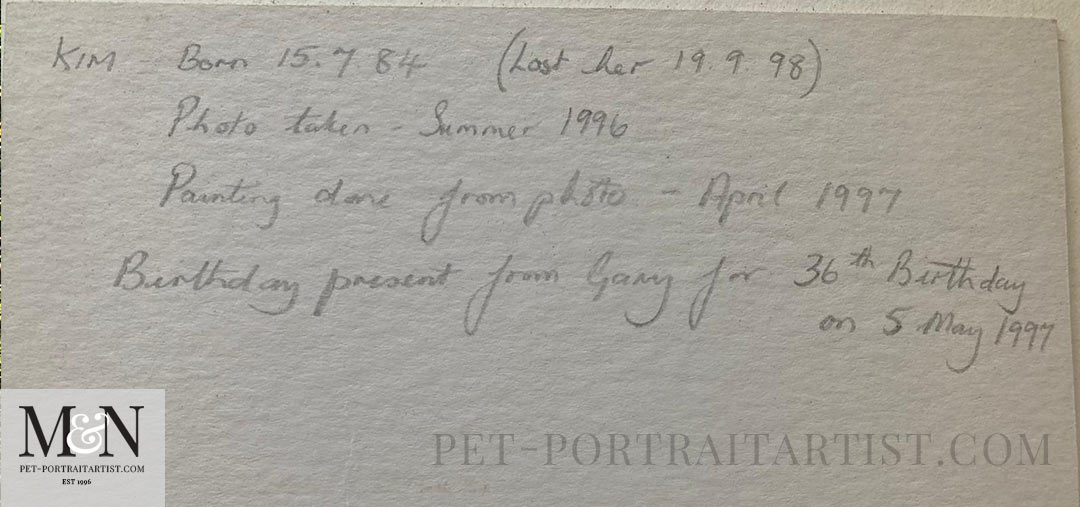 KIM - Born 15.7.84 (Lost her 19.9.98)
Photo taken - Summer 1996
Painting done from photo - April 1997
Birthday present from Gary for 36th Birthday
on 5 May 1997
M&N
PET-PORTRAITARTIST.COM
EST 1996
PET-PORTRAITARTIST.COM